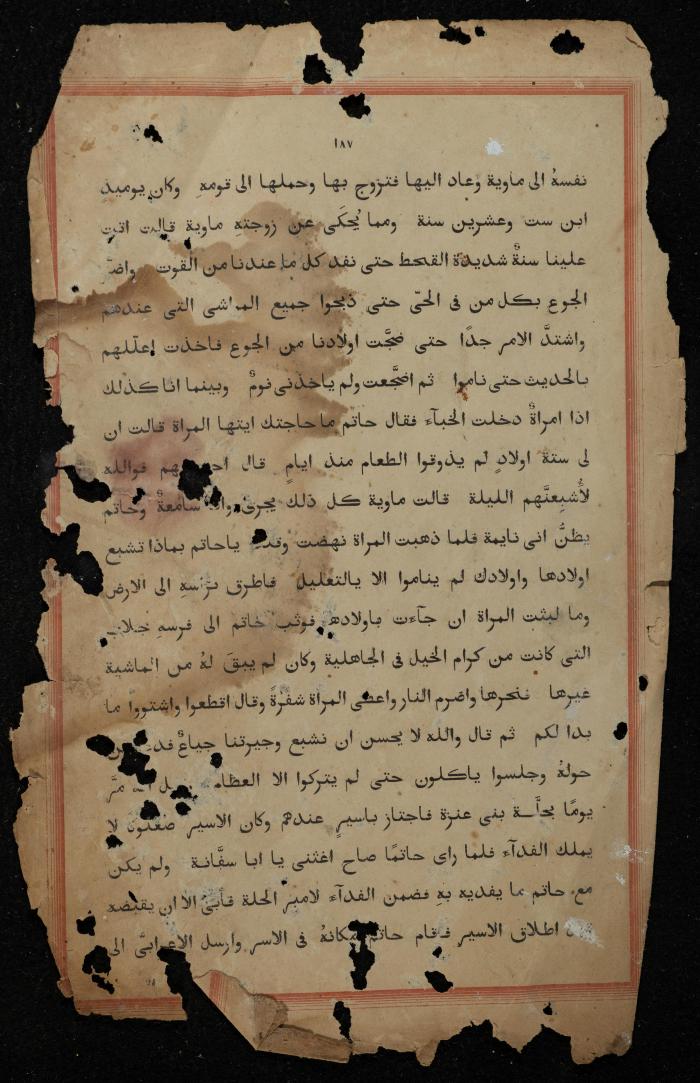 ١٨٧
نفسهُ الى ماوية وعاد اليها فتزوج بها وحملها الى قومهِ وكان يوميذ
ابن ست وعشرين سنة ومما يُحكَى عن زوجتهِ ماوية قالت اتت
علينا سنةٌ شديدة القحط حتى نفد كل ما عندنا من القوت
الجوع بكل من فى الحىّ حتى ذبحوا جميع المواشى التى عندهم
واشتدَّ الامر جدًا حتى ضجَّت اولادنا من الجوع فاخذت اعلّلهم
بالحديث حتى ناموا ثم اضجَّعت ولم ياخذنى نومٌ وبينما انا كذلك
اذا امراةٌ دخلت الخبآء فقال حاتم ما حاجتك ايتها المراة قالت ان
لى ستة اولادٍ لم يذوقوا الطعام منذ ايامٍ قال فوالله
لأُشبِعنَّهم الليلة قالت ماوية كل ذلك يجرى وانا سامعةٌ وحاتم
يظنُّ انى نايمة فلما ذهبت المراة نهضت وقلت ياحاتم بماذا تشبع
اولادها واولادك لم يناموا الا بالتعليل فاطرق براسهِ الى الارض
وما لبثت المراة ان جآءت باولادها فوثب حاتم الى فرسهِ جلاب
التى كانت من كرام الخيل فى الجاهلية وكان لم يبقَ لهُ من الماشية
غيرها فنحرها واضرم النار واعطى المراة شفرةً وقال اقطعوا واشتووا ما
بدا لكم ثم قال والله لا يحسن ان نشبع وجيرتنا جياعٌ
حولهُ وجلسوا ياكلون حتى لم يتركوا الا العظام مرَّ
يومًا بحلَّـة بنى عنزة فاجتاز باسيرٍ عندهم وكان الاسير صعلوك لا
يملك الفدآء فلما راى حاتمًا صاح اغثنى يا ابا سفَّانة ولم يكن
مع حاتم ما يفديه بهِ فضمن الفدآء لامير الحلة فأبى الا ان يقبضه
اطلاق الاسير فاقام حاتم مكانهُ فى الاسر وارسل الاعرابىَّ الى